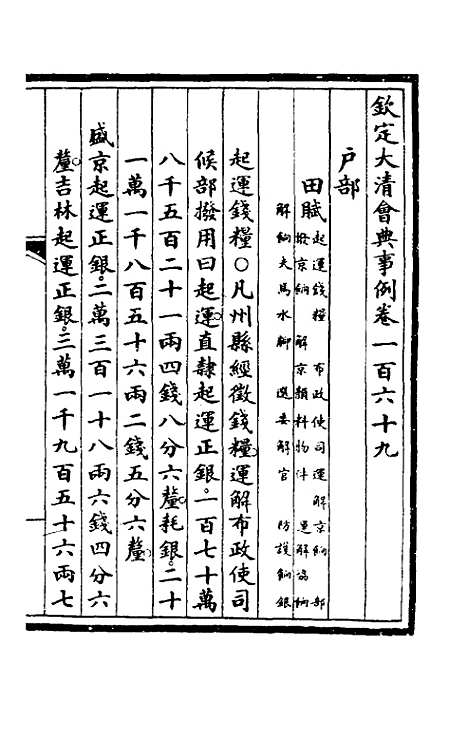 欽定大清會典事例卷一百六十九
戶部
田賦 起運錢糧 布政使司運解京餉 部
撥京餉 解京顏料物件 運解協餉
解餉夫馬水腳 選委解官 防護餉銀
起運錢糧○凡州縣經徵錢糧。運解布政使司
候部撥用曰起運。直隸起運正銀。一百七十萬
八千五百二十一兩四錢八分六釐。耗銀。二十
一萬一千八百五十六兩二錢五分六釐。
盛京起運正銀。二萬三百一十八兩六錢四分六
釐。吉林起運正銀。三萬一千九百五十六兩七